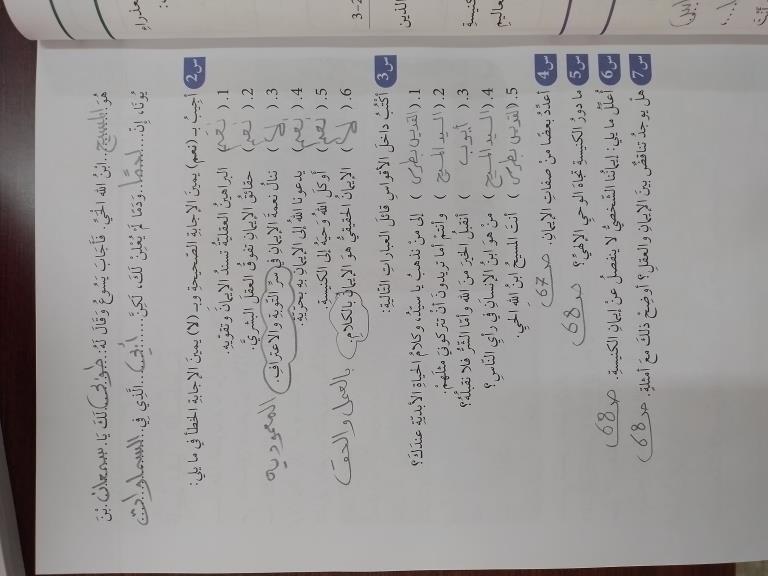 هُوَ المسيح ابْنُ اللهِ الحَيِّ. فَأَجَابَ يَسُوعُ وَقَالَ لَهُ: طوبى لَكَ يَا. سمعان. بْنَ
يُونَا، إِنَّ... لحمًا.. وَدَمًا لَمْ يُعْلِنْ لَكَ، لَكِنَّ.... أبي... الَّذِي فِي.. السماوات...
س2 أُجِيبُ بِـ (نعم) يمينَ الإجابةِ الصحيحةِ وبِـ (لا) يمينَ الإجابةِ الخطأ في ما يلي:
1. ( نعم ) البراهينُ العقليّةُ تسندُ الإيمانَ وتقوّيه.
2. ( نعم ) حقائقُ الإيمانِ تفوقُ العقلَ البشريَّ.
3. ( لا ) ننالُ نعمةَ الإيمانِ في سرِّ التوبةِ والاعترافِ. المعمودية
4. ( نعم ) يدعونا اللهُ إلى الإيمانِ بهِ بحرّيّة.
5. ( نعم ) أوكلَ اللهُ وَحيَهُ إلى الكنيسةِ.
6. ( لا ) الإيمانُ الحقيقيُّ هوَ الإيمانُ بالكلامِ. بالعمل والحق
س3 أكتُبُ داخلَ الأقواسِ قائلَ العباراتِ التاليةِ:
1. ( القديس بطرس ) إلى مَنْ نذهبُ يا سيّدُ، وكلامُ الحياةِ الأبديّةِ عندَكَ؟
2. ( السيد المسيح ) وأنتُم أما تريدونَ أنْ تتركوني مثلَهُمْ؟
3. ( أيوب ) أنقبلُ الخيرَ مِنَ اللهِ وأمّا الشرُّ فلا نقبلُهُ؟
4. ( السيد المسيح ) مَنْ هوَ ابنُ الإنسانِ في رأيِ النّاسِ؟
5. ( القديس بطرس ) أنتَ المسيحُ ابنُ اللهِ الحيِّ.
س4 أعدّدُ بعضًا مِنْ صفاتِ الإيمانِ. ص 67
س5 ما دورُ الكنيسةِ تجاهَ الوحيِ الإلهيِّ؟ ص 68
س6 أعلّلُ ما يلي: إيمانُنا الشخصيُّ لا ينفصلُ عَنْ إيمانِ الكنيسةِ. ص 68
س7 هلْ يوجدُ تناقضٌ بينَ الإيمانِ والعقلِ؟ أوضحُ ذلكَ معَ أمثلةٍ. ص 68